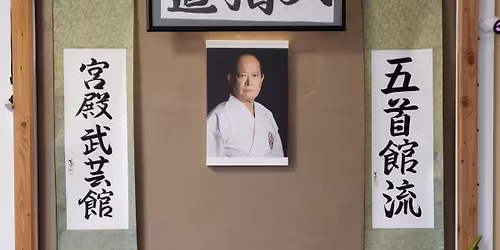 五首館流
宮殿武芸館